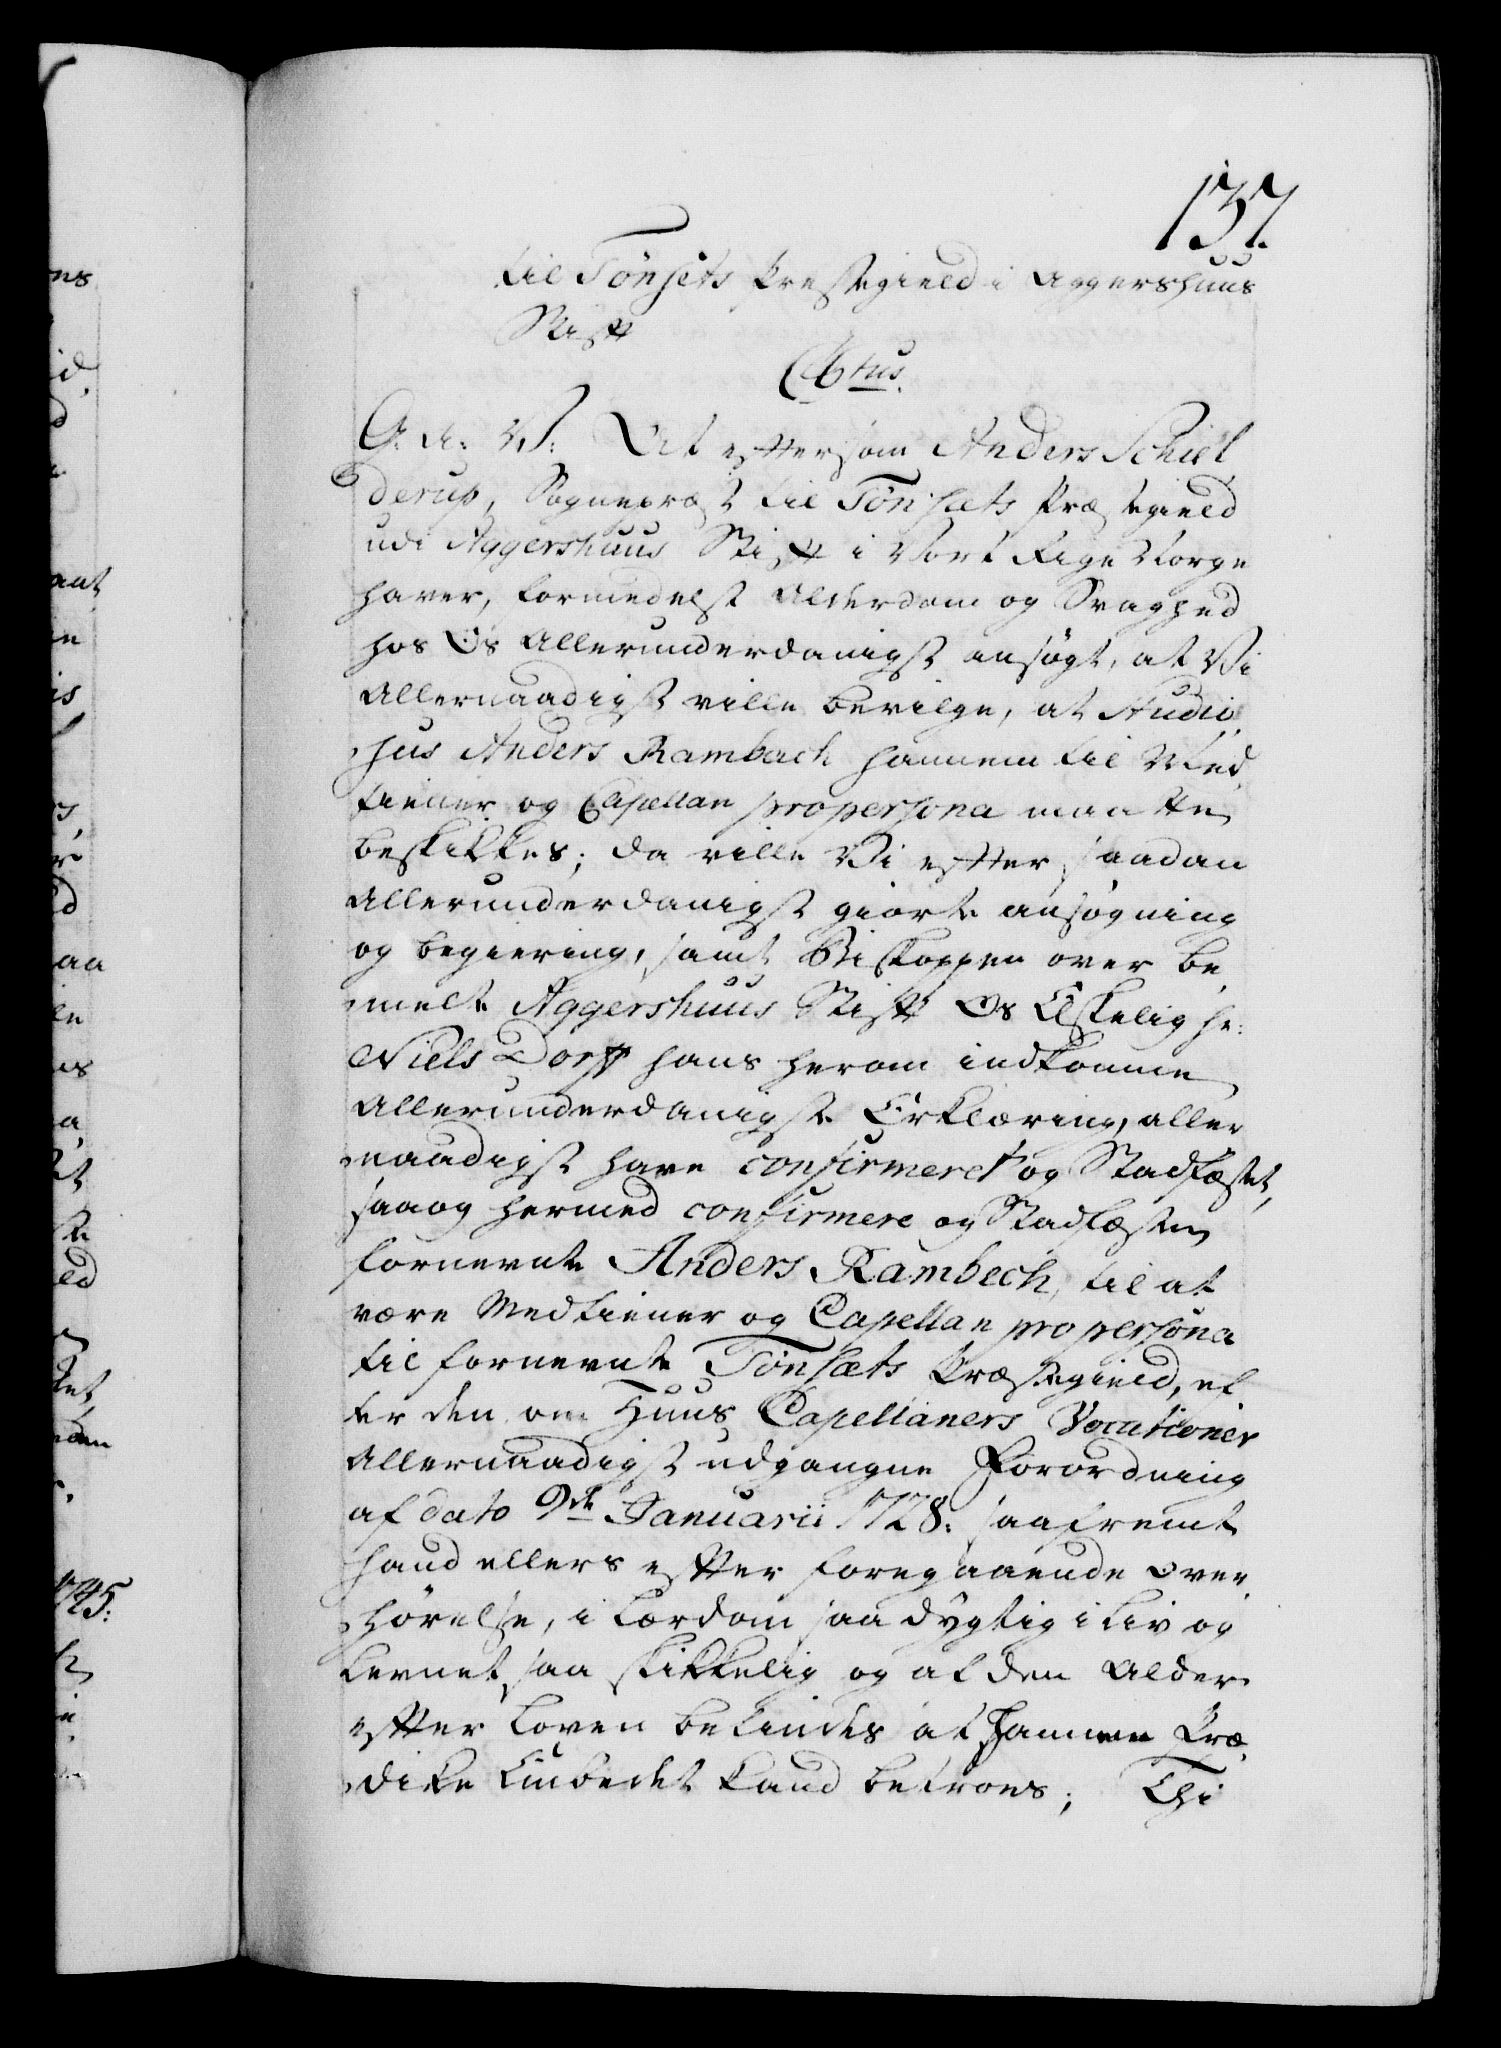 137.
til Tönsets Prestegield i Aggershuus
Stift
C 6tus.
G. A: V: At eftersom Anders Schiel
derup, Sognepræst til Tönsæts Præstegield
udi Aggershuus Stift i Vort Rige Norge
haver, formedelst Alderdom og Svaghed
hos Os Allerunderdanigst ansögt, at Vi
Allernaadigst ville bevilge, at Studio
sus Anders Rambach hannem til Med
tiener og Capellan pro persona maatte
beskikkes; da ville Vi efter saadan
Allerunderdanigst giorte ansögning
og begiering, samt Biskoppen over be
melte Aggershuus Stift Os Elskelig Hr:
Niels Dorff hans herom indkomne
Allerunderdanigste Erklæring, aller
naadigst have confirmeret og Stadfæstet,
saa og hermed confirmere og Stadfæste
fornevnte Anders Rambech, til at
være Medtiener og Capellan pro persona
til fornevnte Tönsæts Præstegield, ef
ter den om Huus Capellaners Vocationer
Allernaadigst udgangne Forordning
af dato 9de Januarii 1728: saafremt
hand ellers efter foregaaende Over
hörelse, i Lærdom saa dygtig i Liv og
Levnet saa skikkelig og af den Alder
efter Loven befindes at hannem Præ
dike Embedet kand betroes; Thi